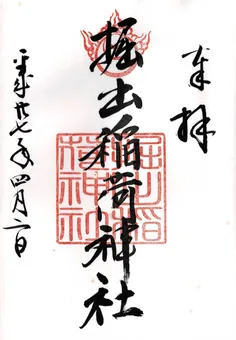 奉拝
掘出稲荷神社
平成廿七年四月二日
堀出稲
荷神社